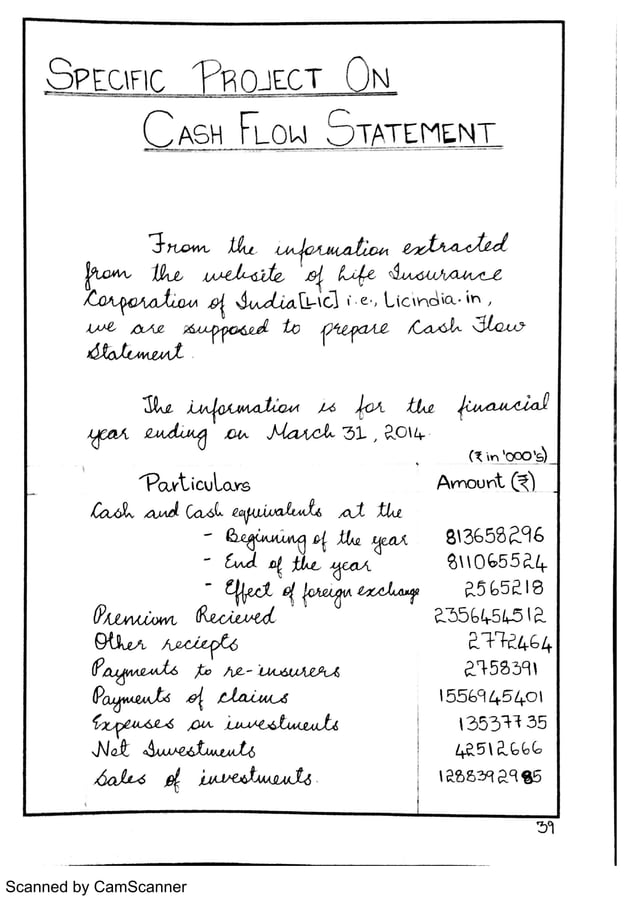 SPECIFIC PROJECT ON
CASH FLOW STATEMENT
From the information extracted
from the website of Life Insurance
Corporation of India [LIC] i.e., Licindia.in,
we are supposed to prepare Cash Flow
Statement.
The information is for the financial
year ending on March 31, 2014.
(₹ in '000's)
Particulars Amount (₹)
Cash and Cash equivalents at the
- Beginning of the year 813658296
- End of the year 811065524
- Effect of foreign exchange 2565218
Premium Recieved 2356454512
Other reciepts 2772464
Payments to re-insurers 2758391
Payments of claims 1556945401
Expenses on investments 13537735
Net Investments 42512666
Sales of investments. 1288392985
39
Scanned by CamScanner